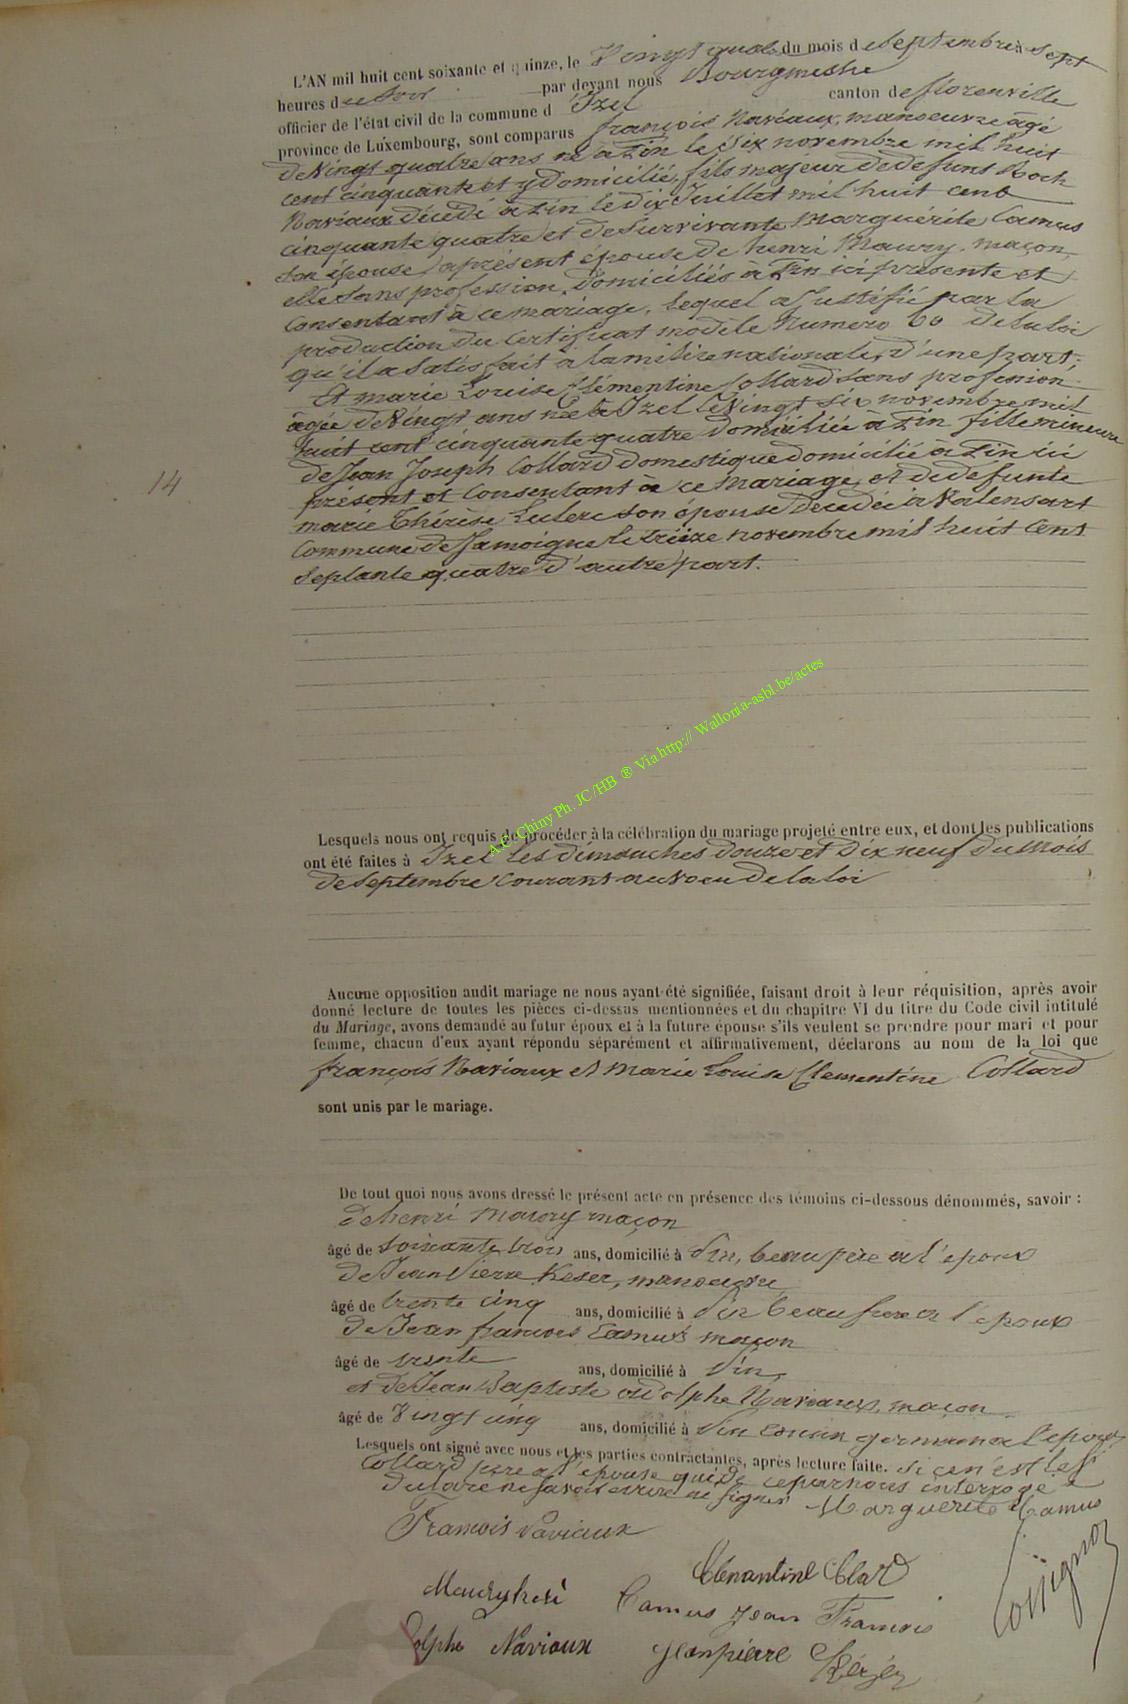 L'AN mil huit cent soixante et quinze, le Vingt quat du mois de Septembre à Sept
heures du Soir par devant nous Bourgmestre
officier de l'état civil de la commune d'Izel canton de florenville
province de Luxembourg, sont comparus françois Naviaux, manoeuvre âgé
de Vingt quatre ans né à Pin le Six novembre mil huit
cent cinquante et y domicilié, fils majeur de defunt Roch
Naviaux décédé à Pin le dix Juillet mil huit cent
cinquante quatre et de Survivante Marguérite Camus
son épouse, àprésent épouse de henri Maury, maçon,
elle sans profession, domiciliés à Pin ici présente et
Consentant à ce mariage, lequel a Justifié par la
production du Certificat modèle Numero 60 de la loi
qu'il a Satisfait à la milice nationale, d'une part;
Et marie Louise Clémentine Collard Sans profession
âgée de Vingt ans née à Izel le Vingt Six novembre mil
huit cent cinquante quatre domiciliée à Pin fille mineure
de Jean Joseph Collard domestique domicilié à Pin ici
présent et Consentant à ce Mariage, et de defunte
marie Thérèse Leclerc son épouse décédée à Valensart
Commune de Jamoigne le treize novembre mil huit Cent
Septante quatre d'autre part.
14
A.C. Chiny Ph. JC/HB ® Via http:// Wallonia-asbl.be/actes
Lesquels nous ont requis de procéder à la célébration du mariage projeté entre eux, et dont les publications
ont été faites à Izel les dimanches douze et dix neuf du mois
de Septembre Courant au voeu de la loi
Aucune opposition audit mariage ne nous ayant été signifiée, faisant droit à leur réquisition, après avoir
donné lecture de toutes les pièces ci-dessus mentionnées et du chapitre VI du titre du Code civil intitulé
du Mariage, avons demandé au futur époux et à la future épouse s'ils veulent se prendre pour mari et pour
femme, chacun d'eux ayant répondu séparément et affirmativement, déclarons au nom de la loi que
françois Naviaux et Marie Louise Clementine Collard
sont unis par le mariage.
De tout quoi nous avons dressé le présent acte en présence des témoins ci-dessous dénommés, savoir :
de henri Maury maçon
âgé de Soixante trois ans, domicilié à Pin, beau père à l'époux
de Jean Pierre Keser, manoeuvre
âgé de trente cinq ans, domicilié à Pin beau frère à l'époux
de Jean françois Camus maçon
âgé de trente ans, domicilié à Pin,
et de Jean Baptiste adolphe Naviaux, maçon
âgé de Vingt cinq ans, domicilié à Pin Cousin germain à l'époux
Lesquels ont signé avec nous et les parties contractantes, après lecture faite. Si ce n'est le Sr
Collard père à l'épouse qui de ce par nous interrogé a
declaré ne Savoir écrire ni signer Marguerite Camus
Framois Naviaux
Clemantine Clard
Maury heri Camus Jean Framois Cossignon
dolphe Naviaux Jeanpierre Kézér